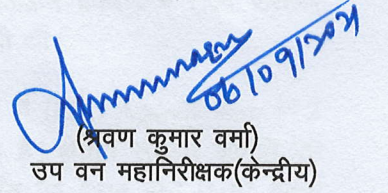 06/09/2021
(श्रवण कुमार वर्मा)
उप वन महानिरीक्षक(केन्द्रीय)